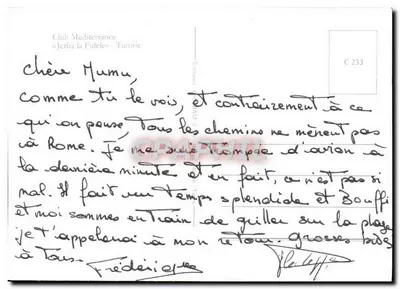 Club Mediterranee
«Jerba la Fidele» - Tunisie
C 233
Chère Mumu,
comme tu le vois, et contrairement à ce
qu'on pense, tous les chemins ne mènent pas
à Rome. Je me suis trompée d'avion à
la dernière minute et en fait, ce n'est pas si
mal. Il fait un temps splendide et Bouffi
et moi sommes en train de griller sur la plage
je t'appelerai à mon retour. Grosses bises
à tous.
Frédérique